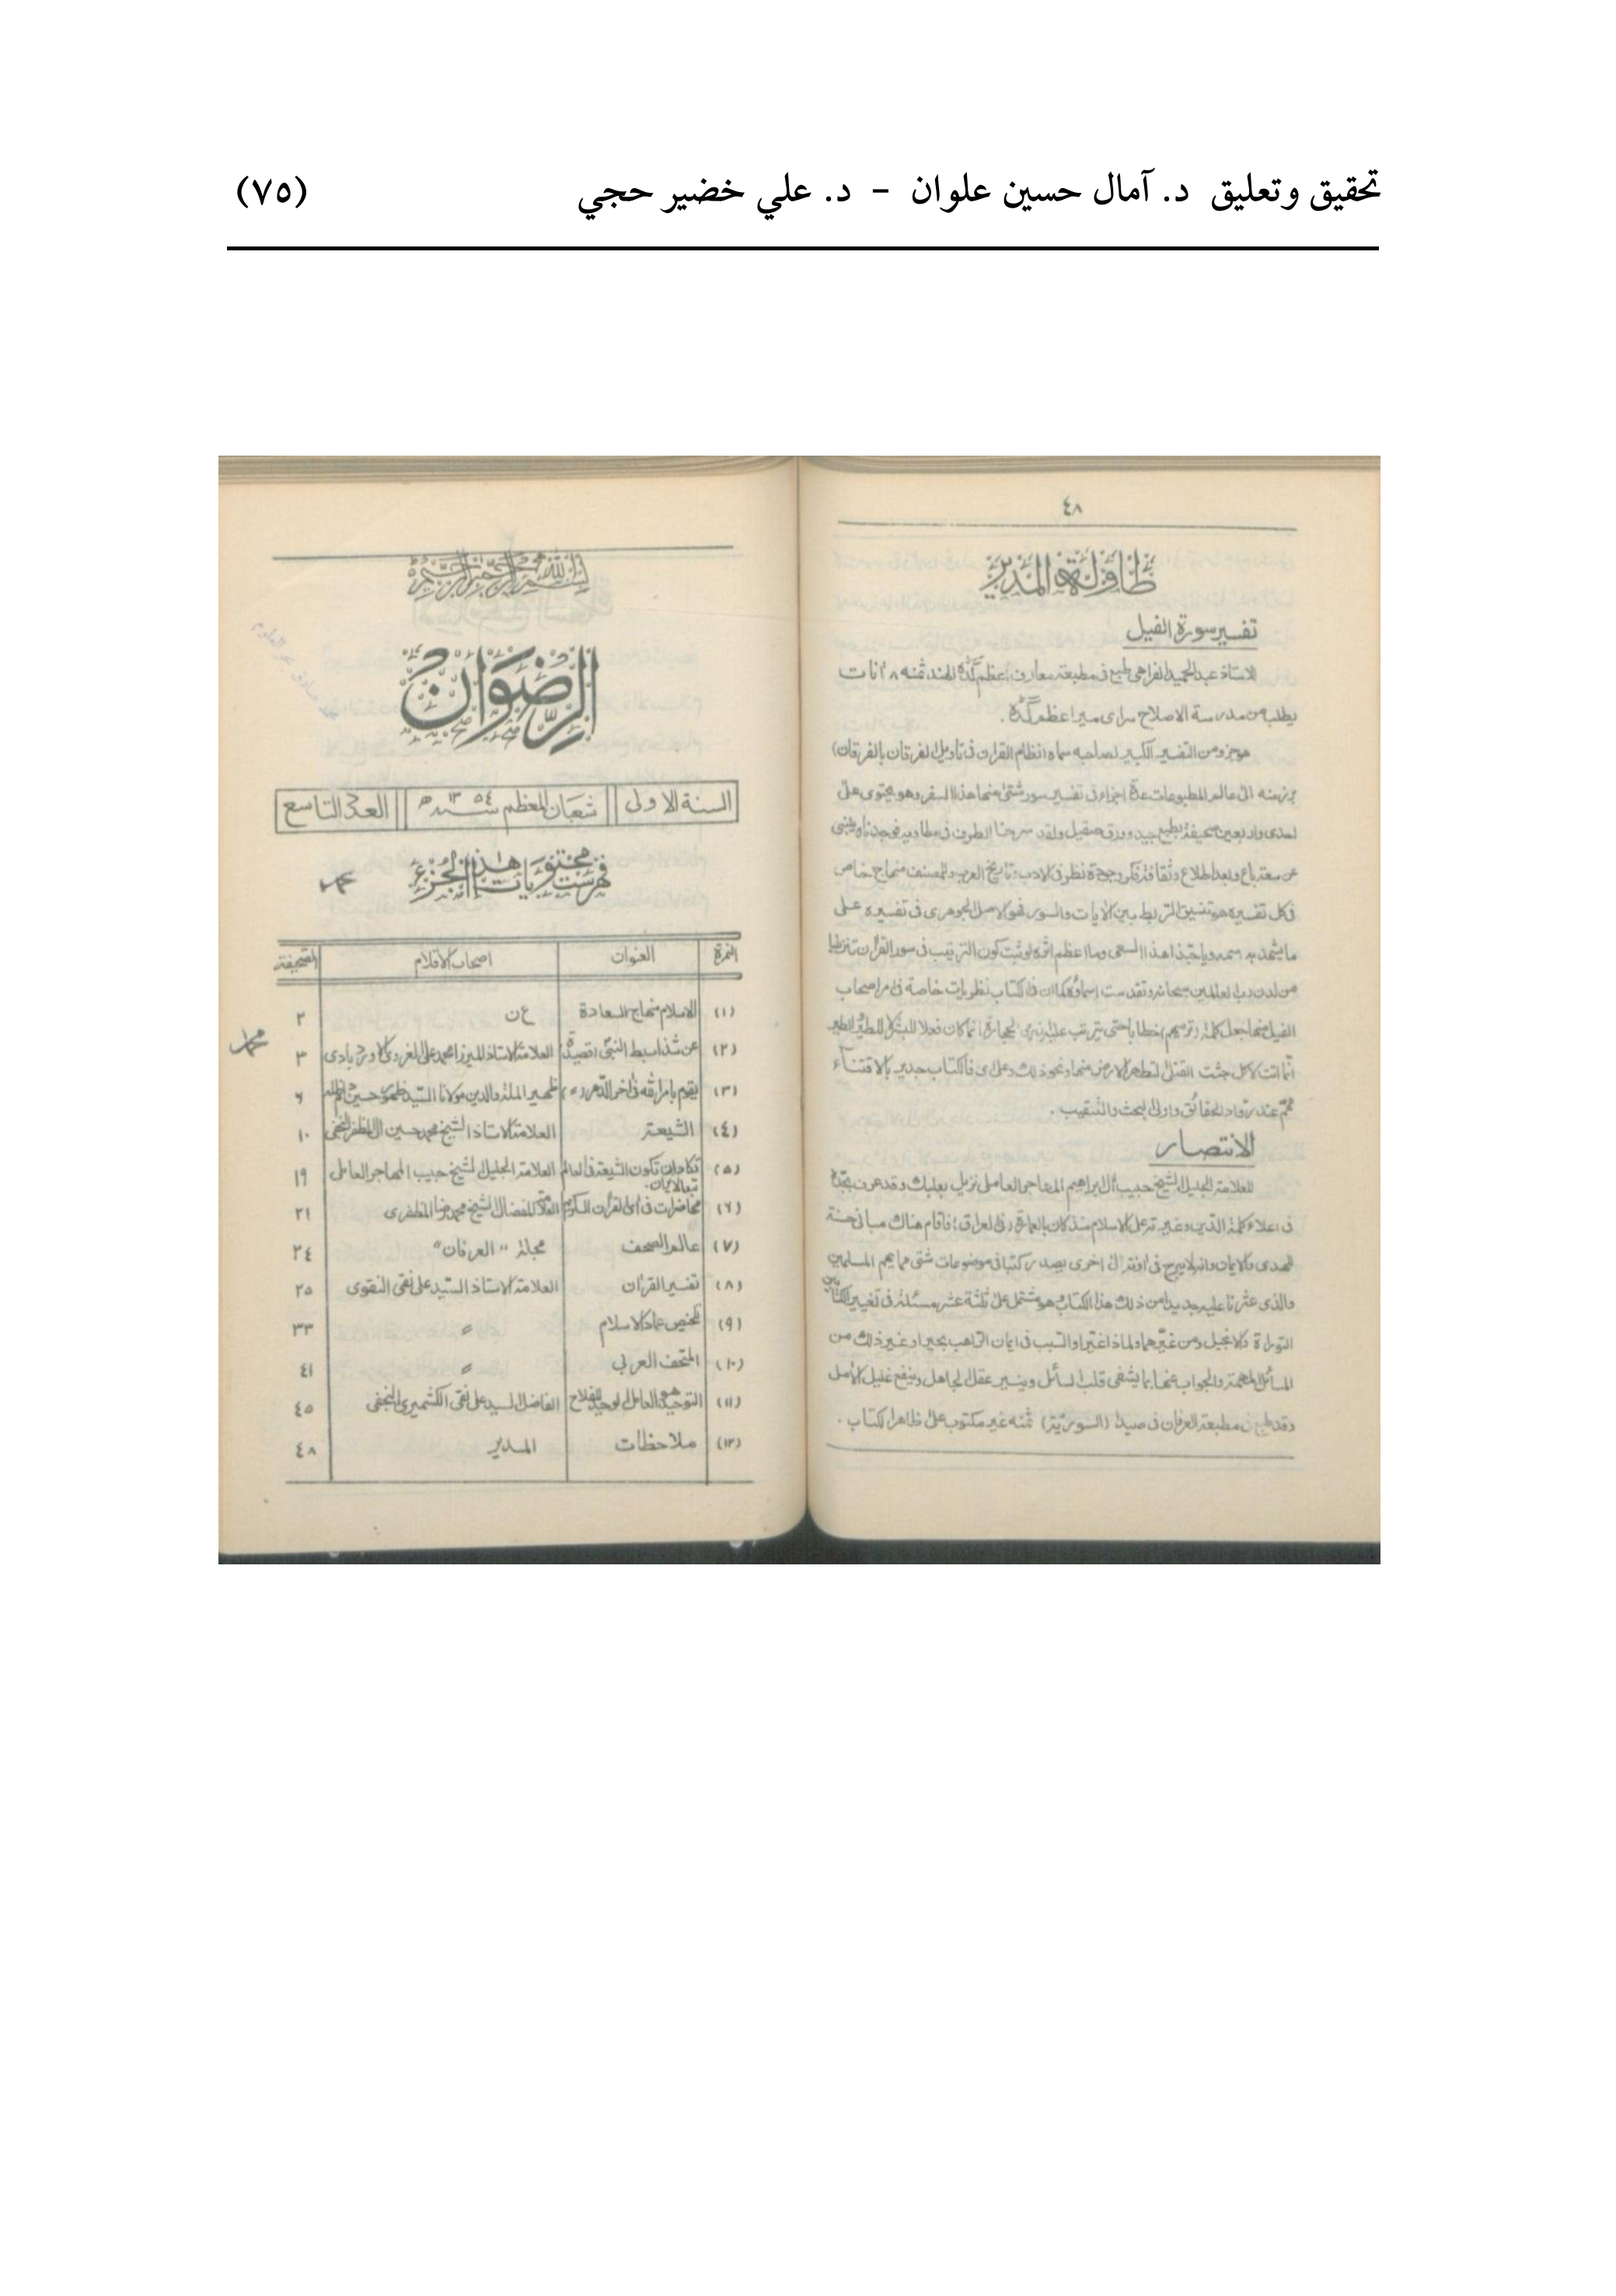 تحقيق وتعليق د. آمال حسين علوان - د. علي خضير حجي (٧٥)
٤٨
تفسير سورة الفيل
للاستاذ عبد الحميد الفراهى طبع فى مطبعة معارف اعظم گڈه الهند ثمنه ٨ انات
يطلب من مدرسة الاصلاح سراى مير اعظم گڈه .
هو جزء من التفسير الكبير لصاحبه سماه (نظام القران فى تاويل الفرقان بالفرقان)
برز منه الى عالم المطبوعات عدة اجزاء فى تفسير سور شتى منها هذا السفر وهو يحتوى على
احدى واربعين صحيفة بطبع جيد وورق صقيل ولقد سرحنا الطرف فى مطاويه فوجدناه ينبئ
عن سعة باع وبعد اطلاع وثقافة فكر وجودة نظر فى الادب وتاريخ العرب وللمصنف منهاج خاص
فى كل تفسيره هو تنسيق الربط بين الايات والسور فهو الاصل الجوهرى فى تفسيره على
ما يشهد به اسمه وياحبذا هذا السعى وما اعظم اثره لو ثبت كون الترتيب فى سور القرآن
من لدن رب العالمين سبحانه وتقدست اسماؤه كما ان فى الكتاب نظريات خاصة فى امر اصحاب
الفيل منها جعل كلمة (ترميهم) خطابا حتى يترتب عليه رمى الحجارة انما كان فعلا للبشر
انما اتت لاكل جثث القتلى لتطهر الارض منها ونحو ذلك وعلى اى فالكتاب جدير بالاقتناء
عند رواد الحقائق واولى البحث والتنقيب .
الانتصار
للعلامة الجليل الشيخ حبيب آل ابراهيم المهاجر العاملى نزيل بعلبك وقد عرف بجده
فى اعلاء كلمة الدين وغيرته على الاسلام منذ كان بالعمارة (فى العراق) فاقام هناك مبانى حسنة
للهدى والايمان وانه لا يبرح فى اونة الى اخرى يصدر كتبا فى موضوعات شتى مما يهم المسلمين
والذى عثرنا عليه جديدا من ذلك هذا الكتاب هو مشتمل على ثلثة عشر مسئلة فى تغيير
التوراة والانجيل ومن غيرهما ولماذا غيرا والسبب فى ايمان الراهب بحيرا وغير ذلك من
المسائل المهمة والجواب عنها بما يشفى قلب السائل وينير عقل الجاهل وينفع غليل الآمل
وقد طبع فى مطبعة العرفان فى صيدا (السورية) ثمنه غير مكتوب على ظاهر الكتاب .
بسم الله الرحمن الرحيم
الرضوان
السنة الاولى شعبان المعظم سنه ١٣٥٤ھ العدد التاسع
فهرست محتويات هذا الجزء
النمرة العنوان اصحاب الاقلام الصحيفة
(١) الاسلام منهاج السعادة ع ن ٢
(٢) عن شذا سبط النبى (قصيدة) العلامة الاستاذ الميرزا محمد على الغروى الاوردبادى ٣
(٣) يقوم بامر الله فى اخر الدهر ظهير الملة والدين مولانا السيد ظهور حسين ٦
(٤) الشيعة العلامة الاستاذ الشيخ محمد حسين ال المظفر النجفى ١٠
(٥) تكاد ان تكون الشيعة فى العالم العلامة الجليل الشيخ حبيب المهاجر العاملى ١٩
(٦) محاضرات فى اى القران الكريم الشيخ محمد رضا المظفرى ٢١
(٧) عالم الصحف مجلة "العرفان" ٢٤
(٨) تفسير القران العلامة الاستاذ السيد على نقى النقوى ٢٥
(٩) تلخيص عماد الاسلام 〃 ٣٣
(١٠) المتحف العربى 〃 ٤١
(١١) التوحيد هو العامل الوحيد للفلاح الفاضل السيد على نقى الكشميرى النجفى ٤٥
(١٢) ملاحظات المدير ٤٨